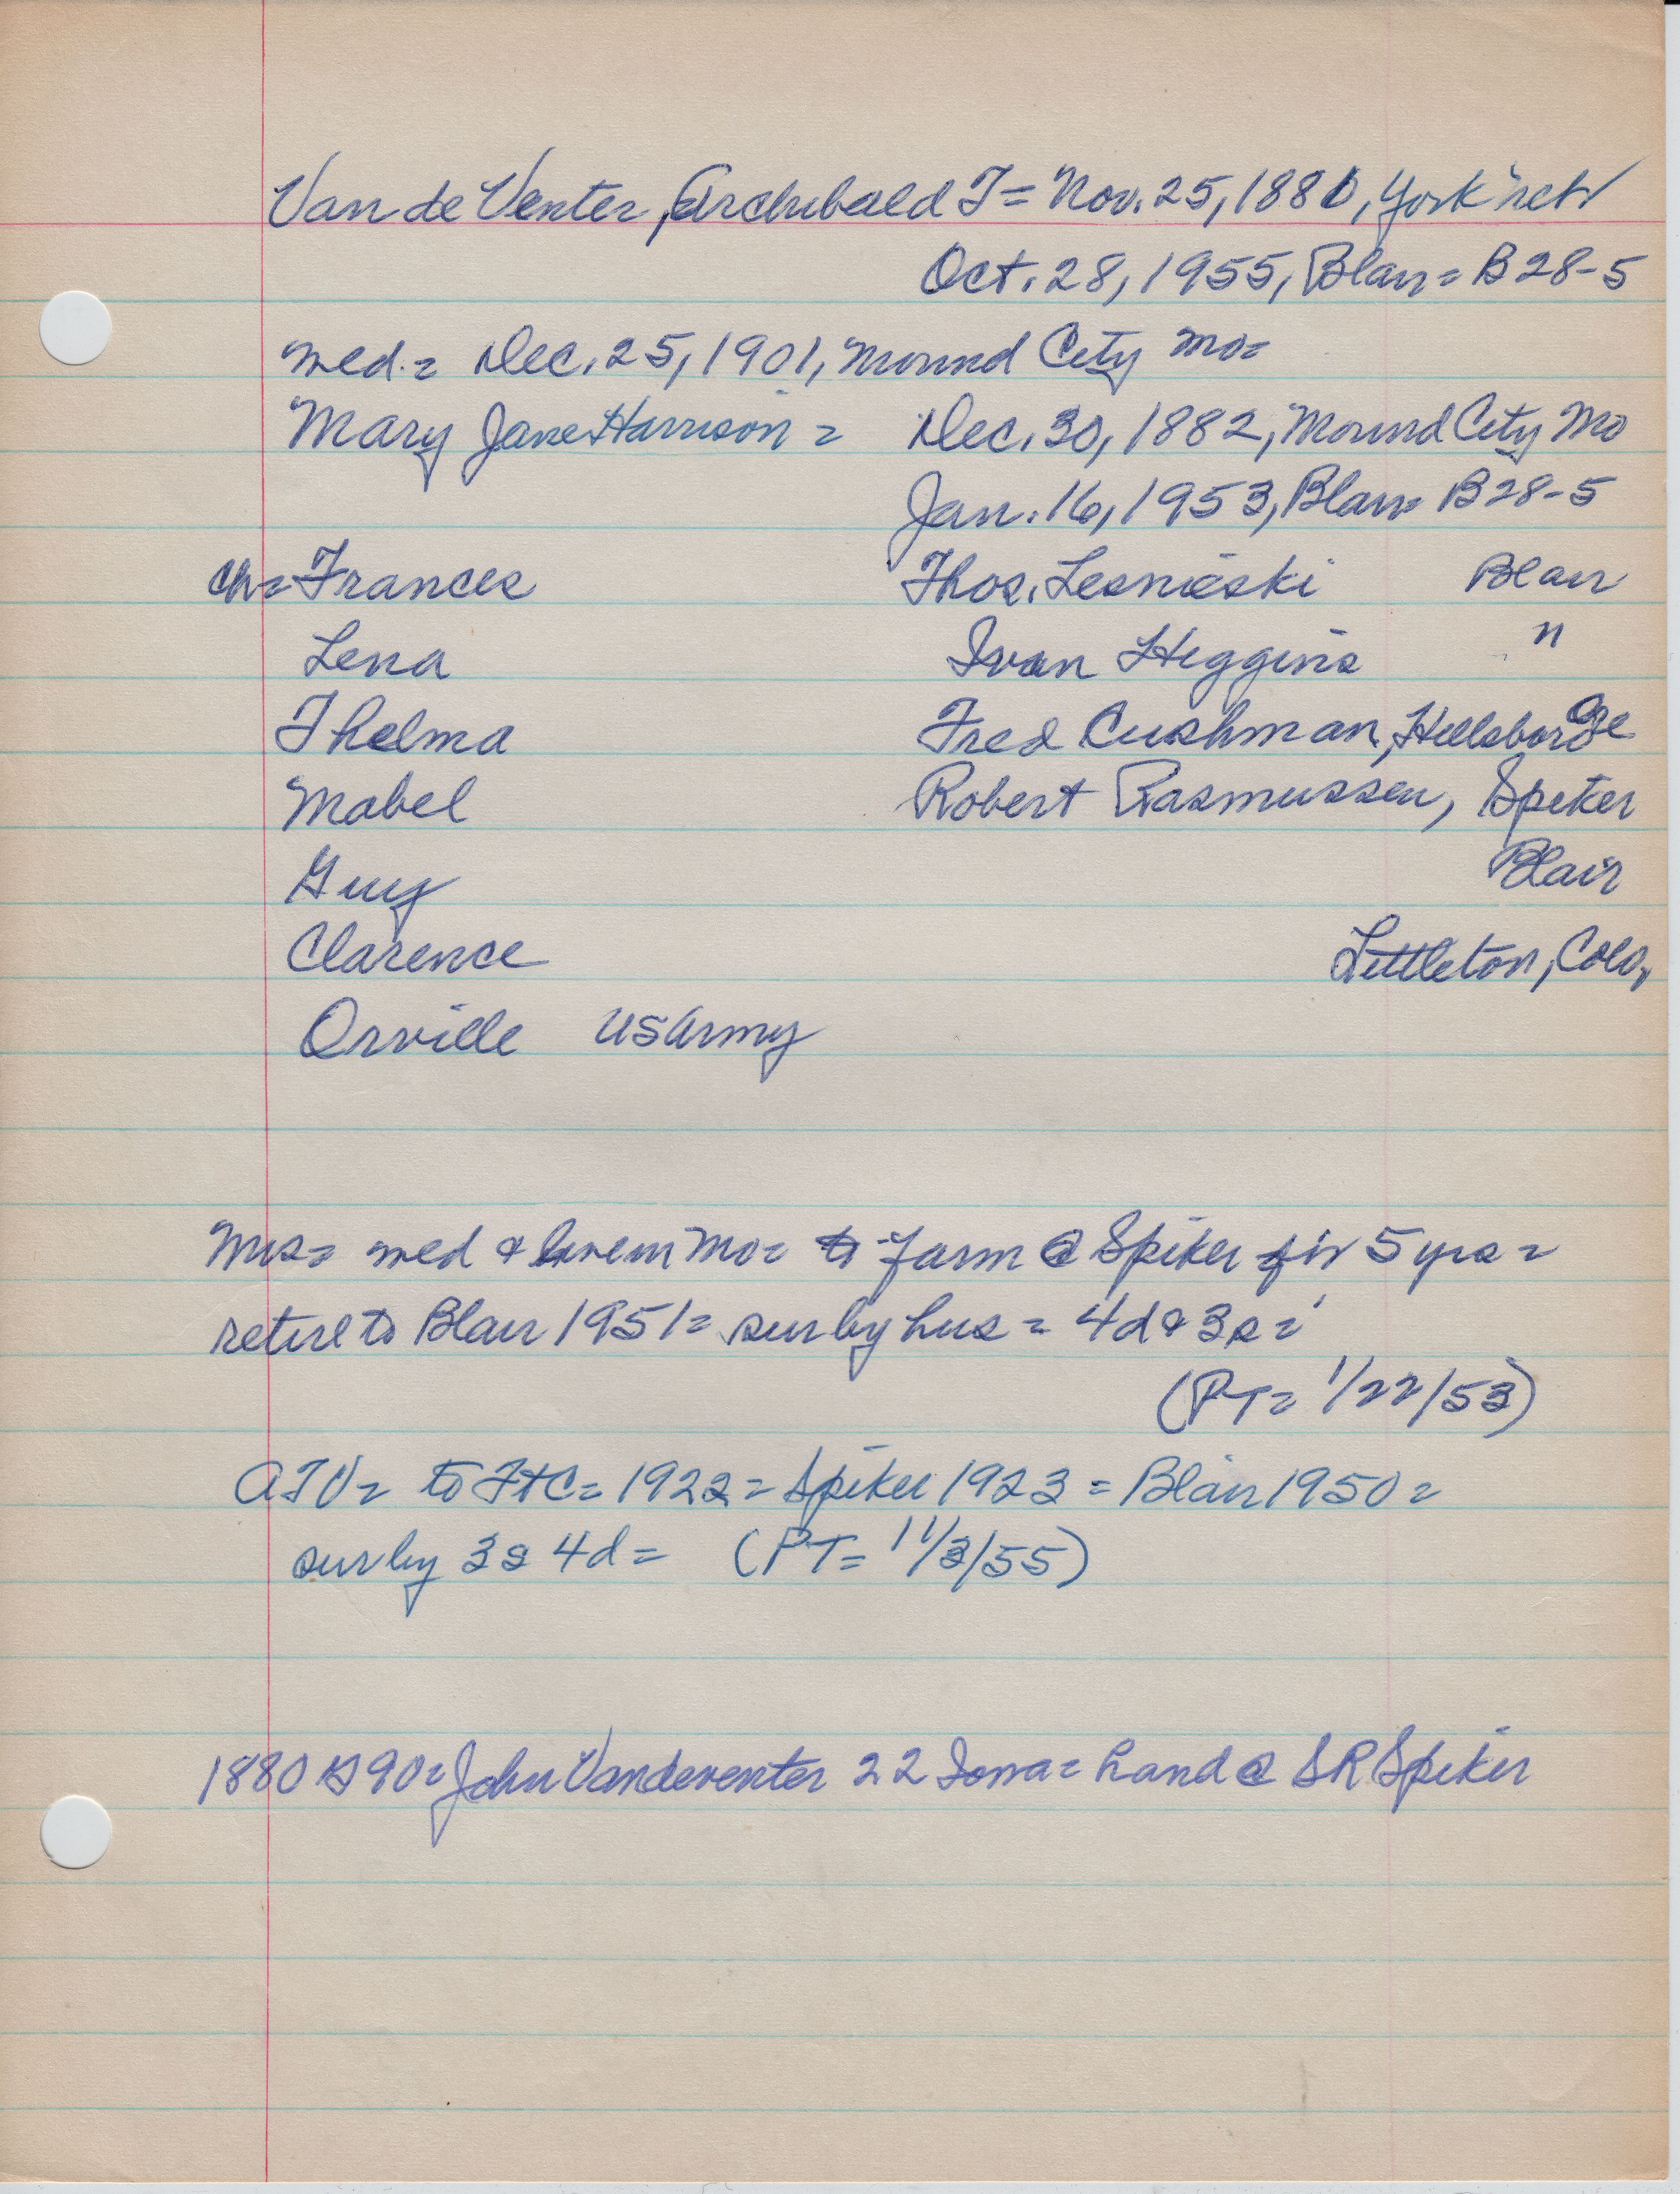 Van de Venter, Archibald T = Nov. 25, 1880, York neb
Oct. 28, 1955, Blair = B 28-5
med. = Dec. 25, 1901, Mound City Mo =
Mary Jane Harrison = Dec. 30, 1882, Mound City Mo
Jan. 16, 1953, Blair = B 28-5
ch = Frances Thos. Lesnieski Blair
Lena Ivan Higgins "
Thelma Fred Cushman, Hillsboro Ore
Mabel Robert Rasmussen, Spiker
Guy Blair
Clarence Littleton, Colo,
Orville US Army
Mrs = med & live in Mo = to farm @ Spiker for 5 yrs =
retire to Blair 1951 = sur by hus = 4d & 3s =
(PT = 1/22/53)
ATV = to Ft C = 1922 = Spiker 1923 = Blair 1950 =
sur by 3s 4d = (PT = 11/3/55)
1880 90 = John Vandeventer 22 Iowa = hand @ SR Spiker